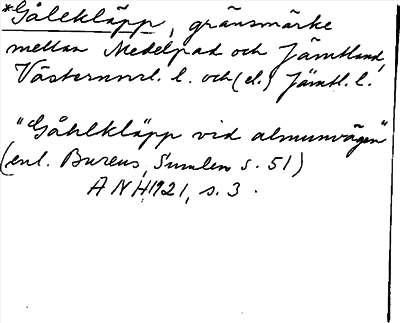 *Gålekläpp, gränsmärke
mellan Medelpad och Jämtland,
Västernorrl. l. och (el.) Jämtl. l.
"Gåhlkläpp vid almunvägen"
(enl. Bureus, Sumlen s. 51)
ANH 1921, s. 3.